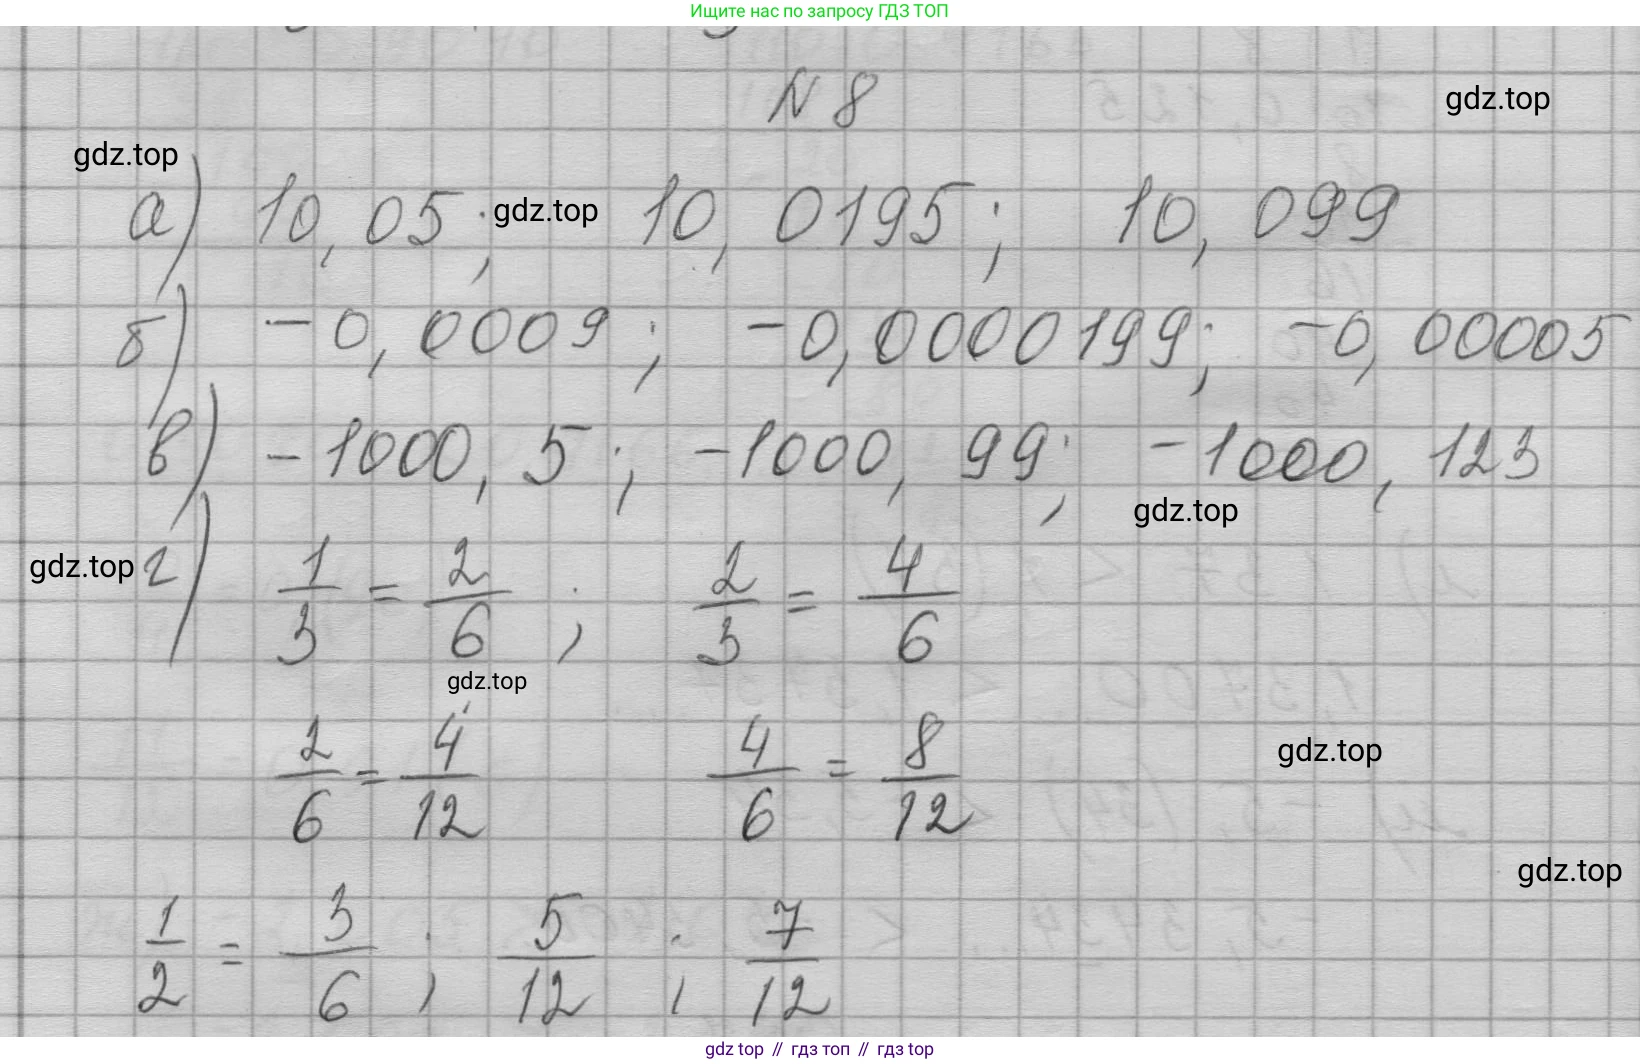 Ищите нас по запросу ГДЗ ТОП
N 8
gdz.top
gdz.top
а) 10,05; gdz.top 10,0195; 10,099
б) -0,0009; -0,0000199; -0,00005
в) -1000,5; -1000,99; -1000,123
gdz.top
gdz.top г) 1/3 = 2/6; 2/3 = 4/6
gdz.top
2/6 = 4/12 4/6 = 8/12
gdz.top
gdz.top
1/2 = 3/6; 5/12; 7/12
gdz top // гдз топ // гдз top